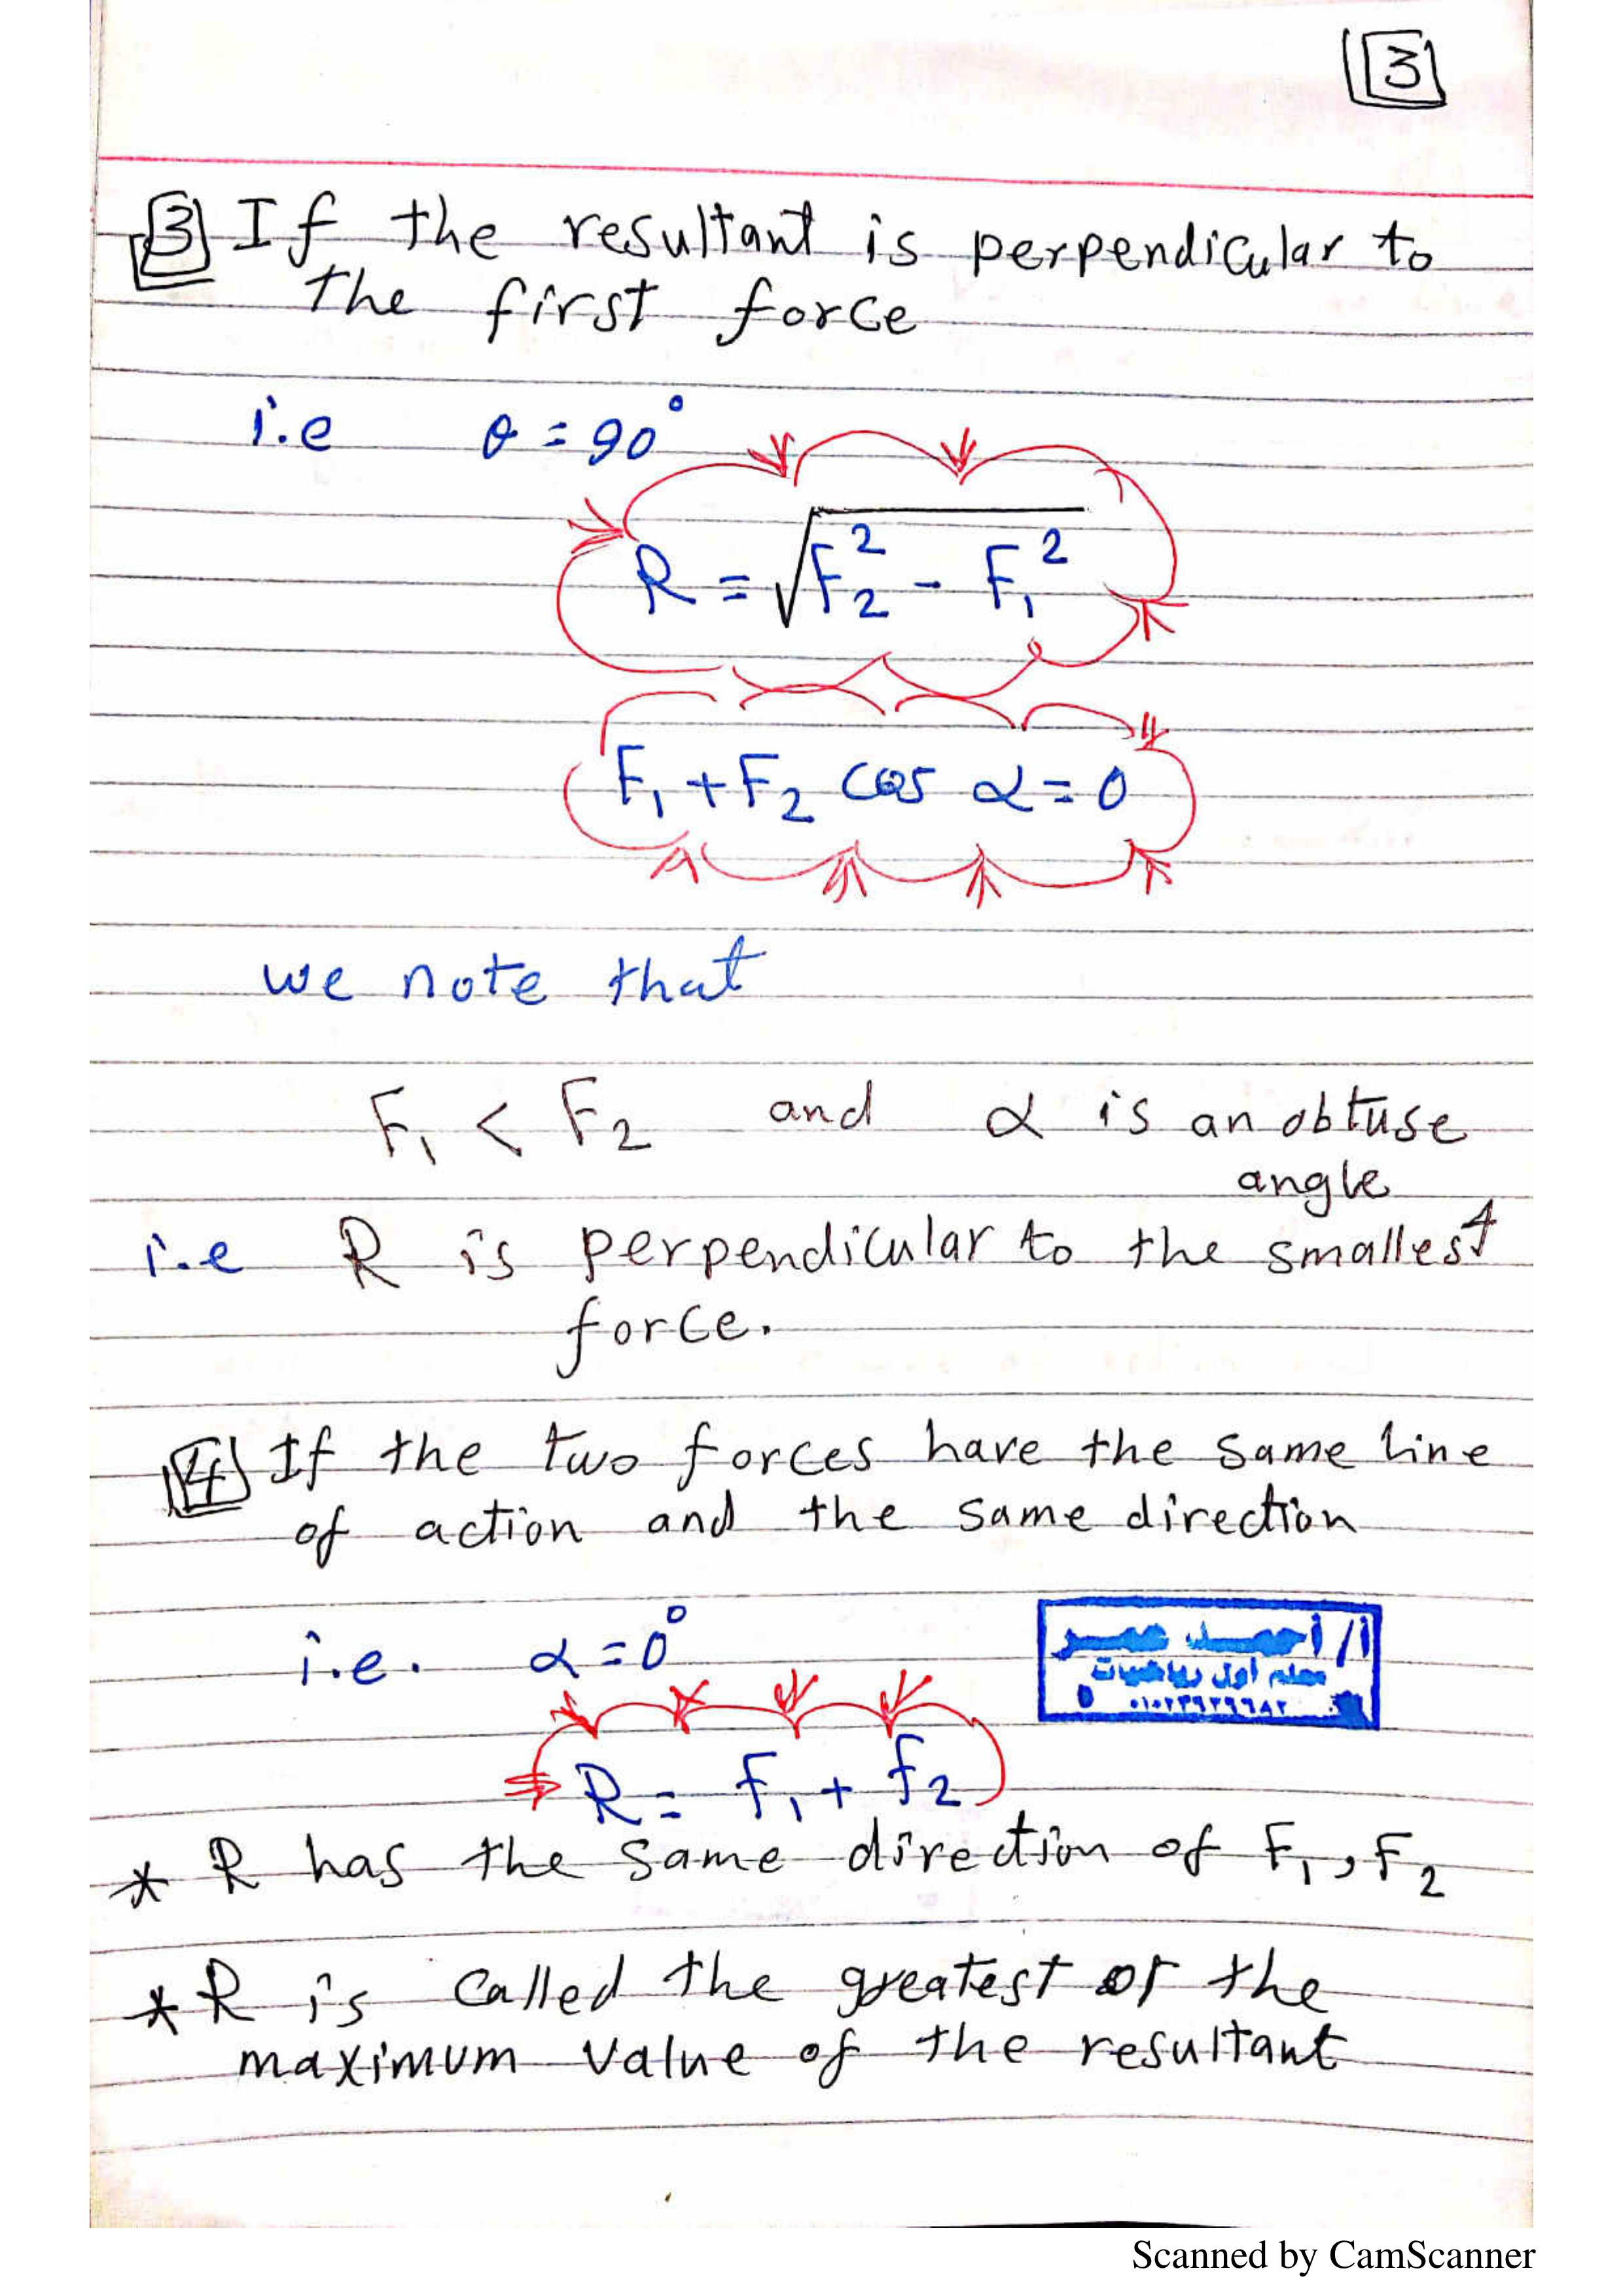 3
3 If the resultant is perpendicular to
the first force
i.e θ = 90°
R = √F₂² - F₁²
F₁ + F₂ cos α = 0
we note that
F₁ < F₂ and α is an obtuse
angle
i.e R is perpendicular to the smallest
force.
4 If the two forces have the same line
of action and the same direction
i.e. α = 0°
أ/ أحمد عمر
معلم أول رياضيات
R = F₁ + F₂
* R has the same direction of F₁, F₂
* R is called the greatest or the
maximum value of the resultant
Scanned by CamScanner